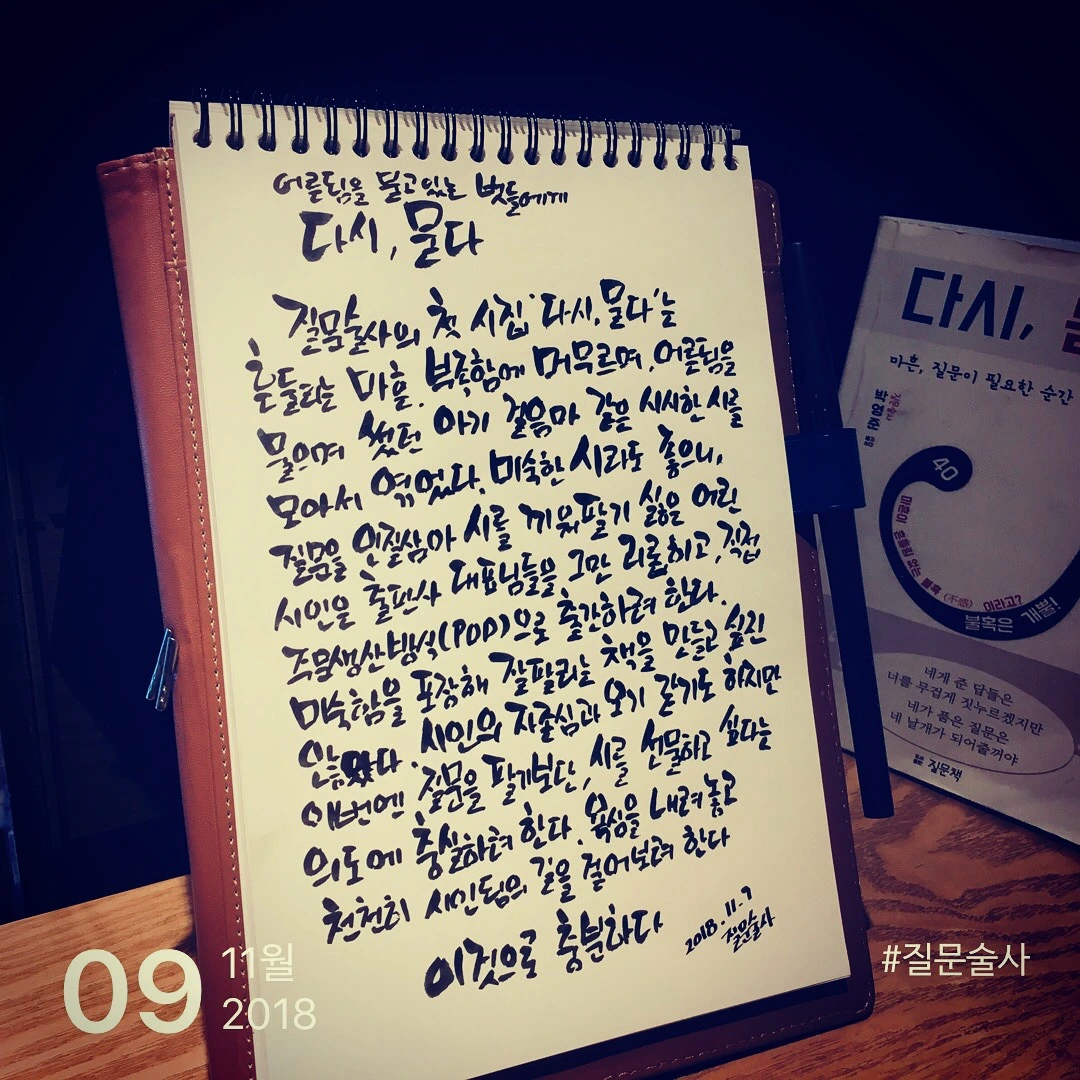 어른됨을 묻고있는 벗들에게
다시, 묻다
질문술사의 첫 시집 '다시, 묻다'는
흔들리는 마흔, 부족함에 머무르며, 어른됨을
물으며 썼던 아기 걸음마 같은 시시한 시를
모아서 엮었다. 미숙한 시라도 좋으니,
질문을 인질삼아 시를 끼워팔기 싫은 어린
시인을 출판사 대표님들을 그만 괴롭히고, 직접
주문생산방식(POD)으로 출간하려 한다.
미숙함을 포장해 잘팔리는 책을 만들고 싶진
않았다. 시인의 자존심과 오기 같기도 하지만
이번엔 질문을 팔기보단, 시를 선물하고 싶다는
의도에 충실하려 한다. 욕심을 내려놓고
천천히 시인됨의 길을 걸어보려 한다
이것으로 충분하다
2018. 11. 7
질문술사
다시,
마흔, 질문이 필요한 순간
박영준
40
마흔이 흔들림 없는 불혹(不惑) 이라고?
불혹은 개뿔!
네게 준 답들은
너를 무겁게 짓누르겠지만
네가 품은 질문은
네 날개가 되어줄꺼야
질문책
09 11월
2018
#질문술사